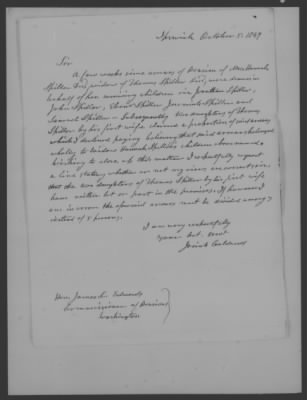 Ipswich October 5. 1849
Sir
A few weeks since arrears of Pension of Mrs Hannah
Spiller widow of Thomas Spiller decd, were drawn in
behalf of her surviving children viz Jonathan Spiller,
John Spiller, Spiller, Spiller and
Samuel Spiller. Subsequently two daughters of Thomas
Spiller by his first wife claimed a proportion of said arrears
which I declined paying believing that said arrears belonged
solely to widow Hannah Spiller's children above named.
Wishing to close up this matter I respectfully request
a line stating whether or not my views are correct or
that the two daughters of Thomas Spiller by his first wife
have neither lot or part in the premises. If however I
am in error the aforesaid arrears must be divided among 7
instead of 5 persons.
I am very respectfully
your obt. servt
Josiah Caldwell
Hon. James L. Edwards
Commissioner of Pensions
Washington